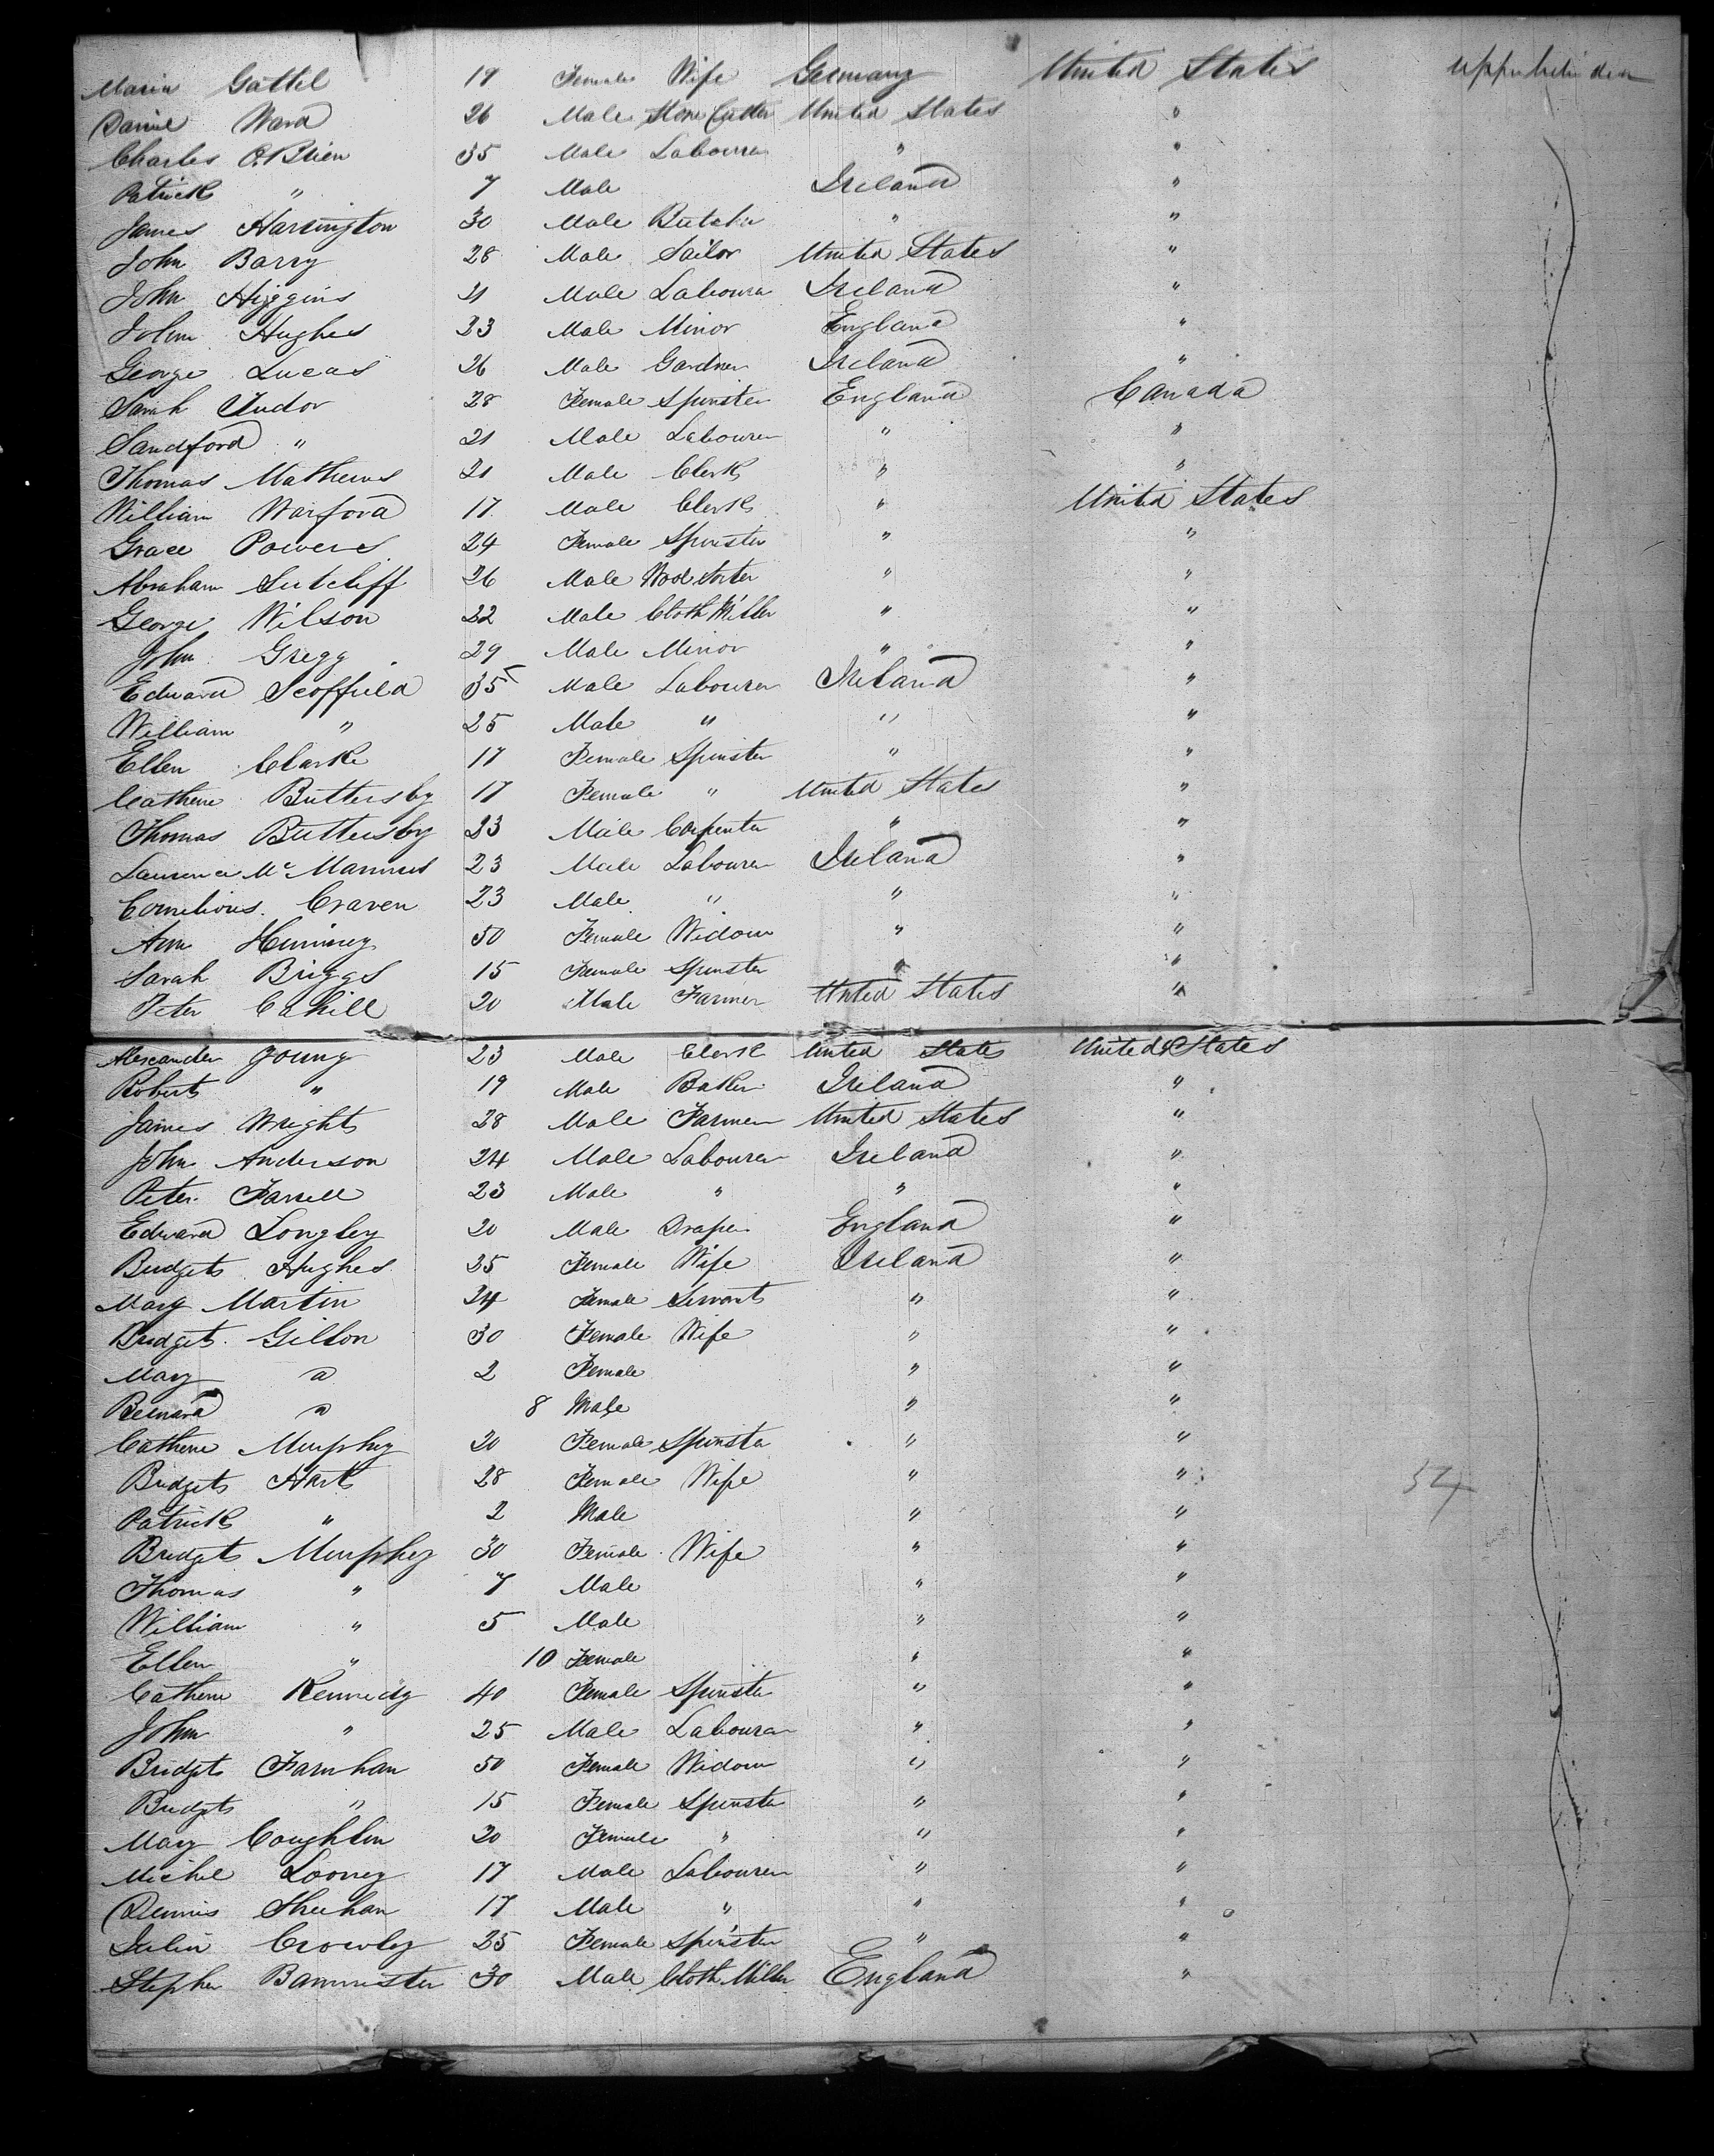 Maria Gattel 19 Female Wife Germany United States
Daniel Ward 26 Male Stone Cutter United States "
Charles O'Brien 35 Male Labourer " "
Patrick " 7 Male Ireland "
James Harrington 30 Male Butcher " "
John Barry 28 Male Sailor United States "
John Higgins 21 Male Labourer Ireland "
John Hughes 23 Male Minor England "
George Lucas 26 Male Gardner Ireland "
Sarah Tudor 28 Female Spinster England Canada
Sandford " 21 Male Labourer " "
Thomas Mathews 21 Male Clerk " "
William Warford 17 Male Clerk " United States
Grace Powers 24 Female Spinster " "
Abraham Sutcliff 26 Male Wool Sorter " "
George Wilson 22 Male Cloth Miller " "
John Gregg 29 Male Minor " "
Edward Scoffield 35 Male Labourer Ireland "
William " 25 Male " " "
Ellen Clarke 17 Female Spinster " "
Cathene Buttersby 17 Female " United States "
Thomas Buttersby 23 Male Carpenter " "
Laurence McMannus 23 Male Labourer Ireland "
Cornelious Craven 23 Male " " "
Ann 50 Female Widow " "
Sarah Briggs 15 Female Spinster " "
Peter Cahill 20 Male Farmer United States "
Alexander Young 23 Male Clerk United States United States
Robert " 19 Male Baker Ireland "
James Wright 28 Male Farmer United States "
John Anderson 24 Male Labourer Ireland "
Peter Farrell 23 Male " " "
Edward Longley 20 Male Draper England "
Bridget Hughes 25 Female Wife Ireland "
Mary Martin 24 Female Servant " "
Bridget Gillon 30 Female Wife " "
Mary " 2 Female " "
Bernard " 8 Male " "
Cathene Murphey 20 Female Spinster " "
Bridget Hart 28 Female Wife " " 54
Patrick " 2 Male " "
Bridget Murphey 30 Female Wife " "
Thomas " 7 Male " "
William " 5 Male " "
Ellen " 10 Female " "
Cathene Kennedy 40 Female Spinster " "
John " 25 Male Labourer " "
Bridget Farnhan 50 Female Widow " "
Bridget " 15 Female Spinster " "
Mary Coughlin 20 Female " " "
Michel Looney 17 Male Labourer " "
Dennis Sheehan 17 Male " " "
Julia Crowley 25 Female Spinster " "
Stephen Bannister 30 Male Cloth Miller England "